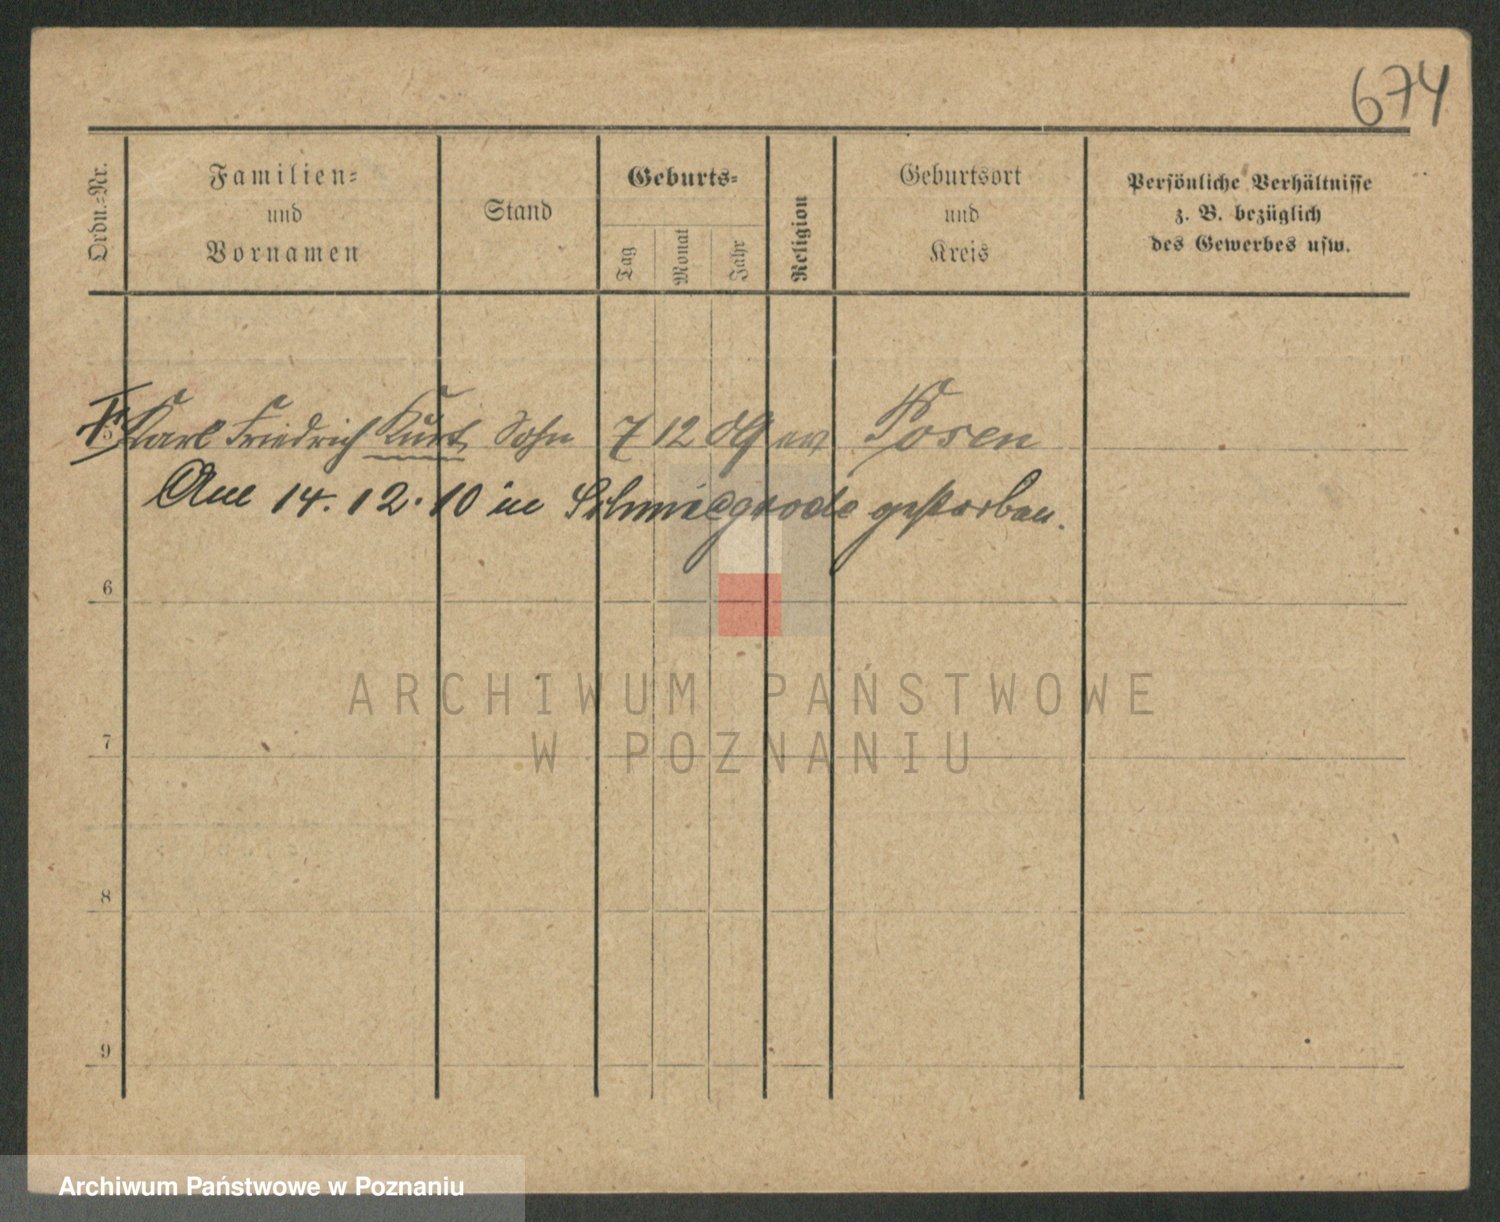 674
Ordn.=Nr.
Familien=
und
Vornamen
Stand
Geburts=
Tag
Monat
Jahr
Religion
Geburtsort
und
Kreis
Persönliche Verhältnisse
z. B. bezüglich
des Gewerbes usw.
5 Karl Friedrich Kurt Sohn 7 12 09 ev Posen
Am 14. 12. 10 in Schmiegrode gestorben.
6
ARCHIWUM PAŃSTWOWE
7
W POZNANIU
8
9
Archiwum Państwowe w Poznaniu